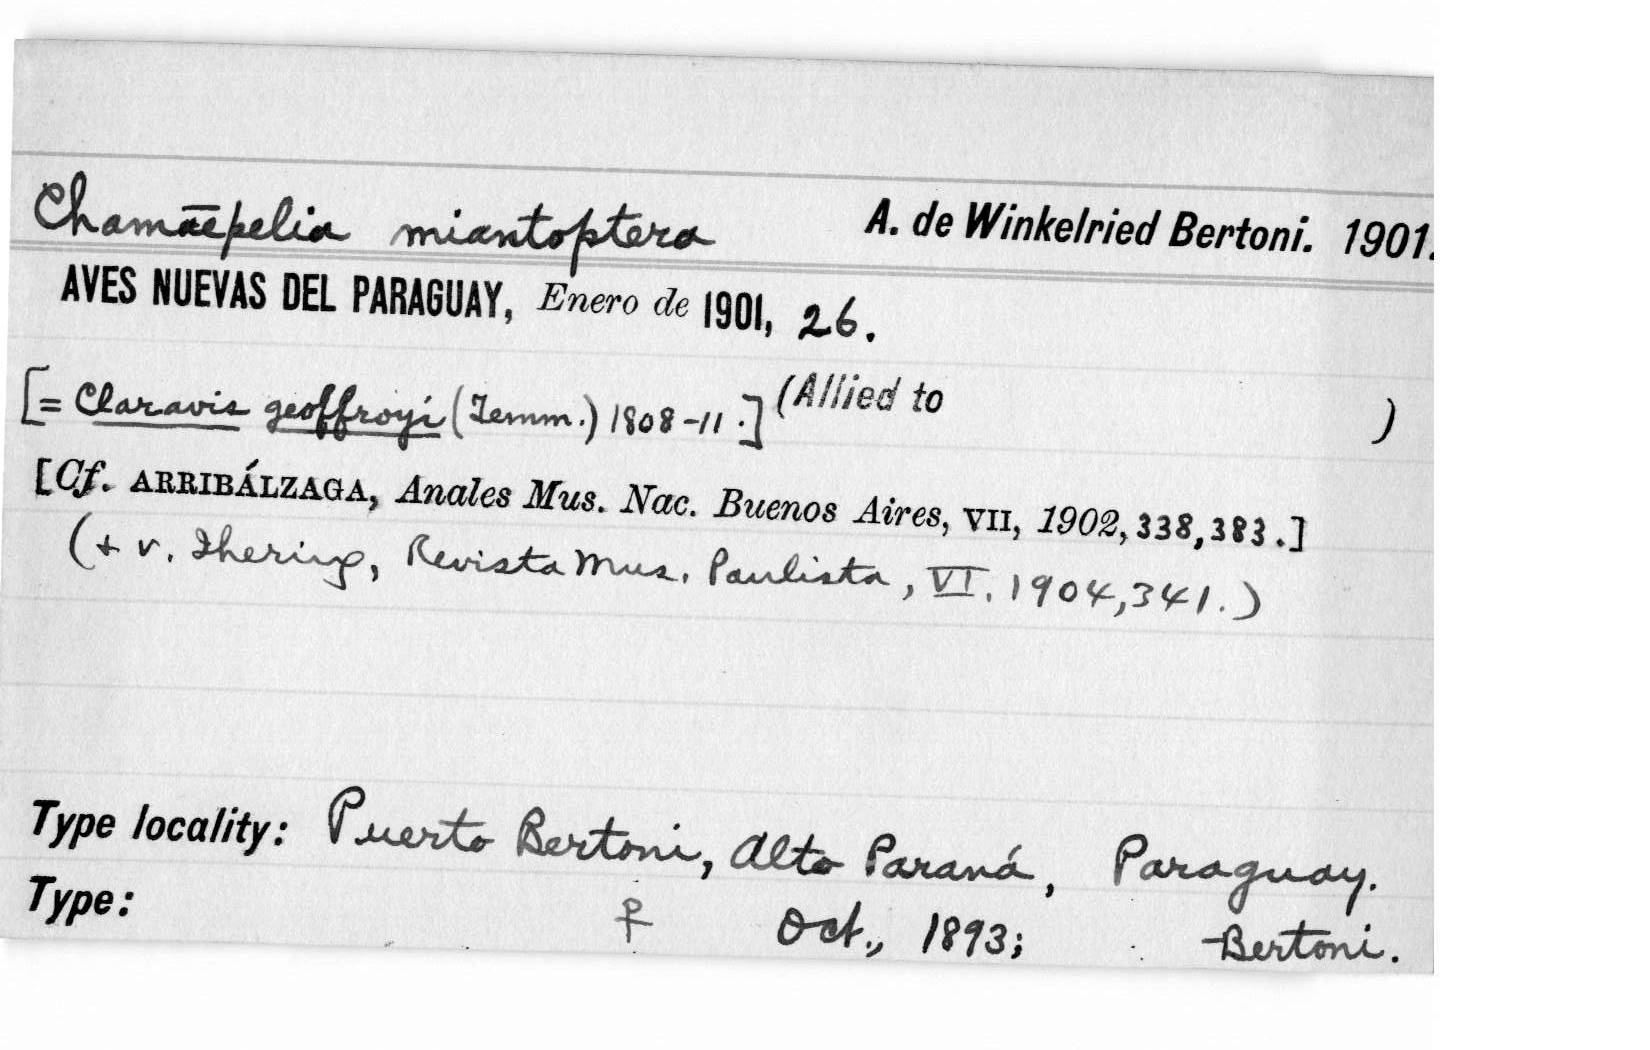 Chamaēpelia miantoptera A. de Winkelried Bertoni. 1901.
AVES NUEVAS DEL PARAGUAY, Enero de 1901, 26.
[= Claravis geoffroyi (Temm.) 1808-11.] (Allied to )
[Cf. ARRIBÁLZAGA, Anales Mus. Nac. Buenos Aires, VII, 1902, 338, 383.]
(+ v. Ihering, Revista Mus. Paulista, VI, 1904, 341.)
Type locality: Puerto Bertoni, Alto Paraná, Paraguay.
Type: ♀ Oct., 1893; -Bertoni.